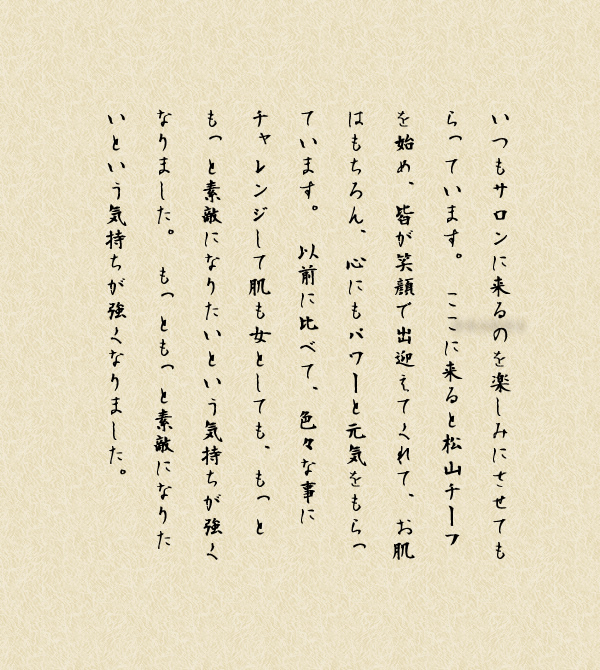 いつもサロンに来るのを楽しみにさせても
らっています。 ここに来ると松山チーフ
を始め、皆が笑顔で出迎えてくれて、お肌
はもちろん、心にもパワーと元気をもらっ
ています。 以前に比べて、色々な事に
チャレンジして肌も女としても、もっと
もっと素敵になりたいという気持ちが強く
なりました。 もっともっと素敵になりた
いという気持ちが強くなりました。